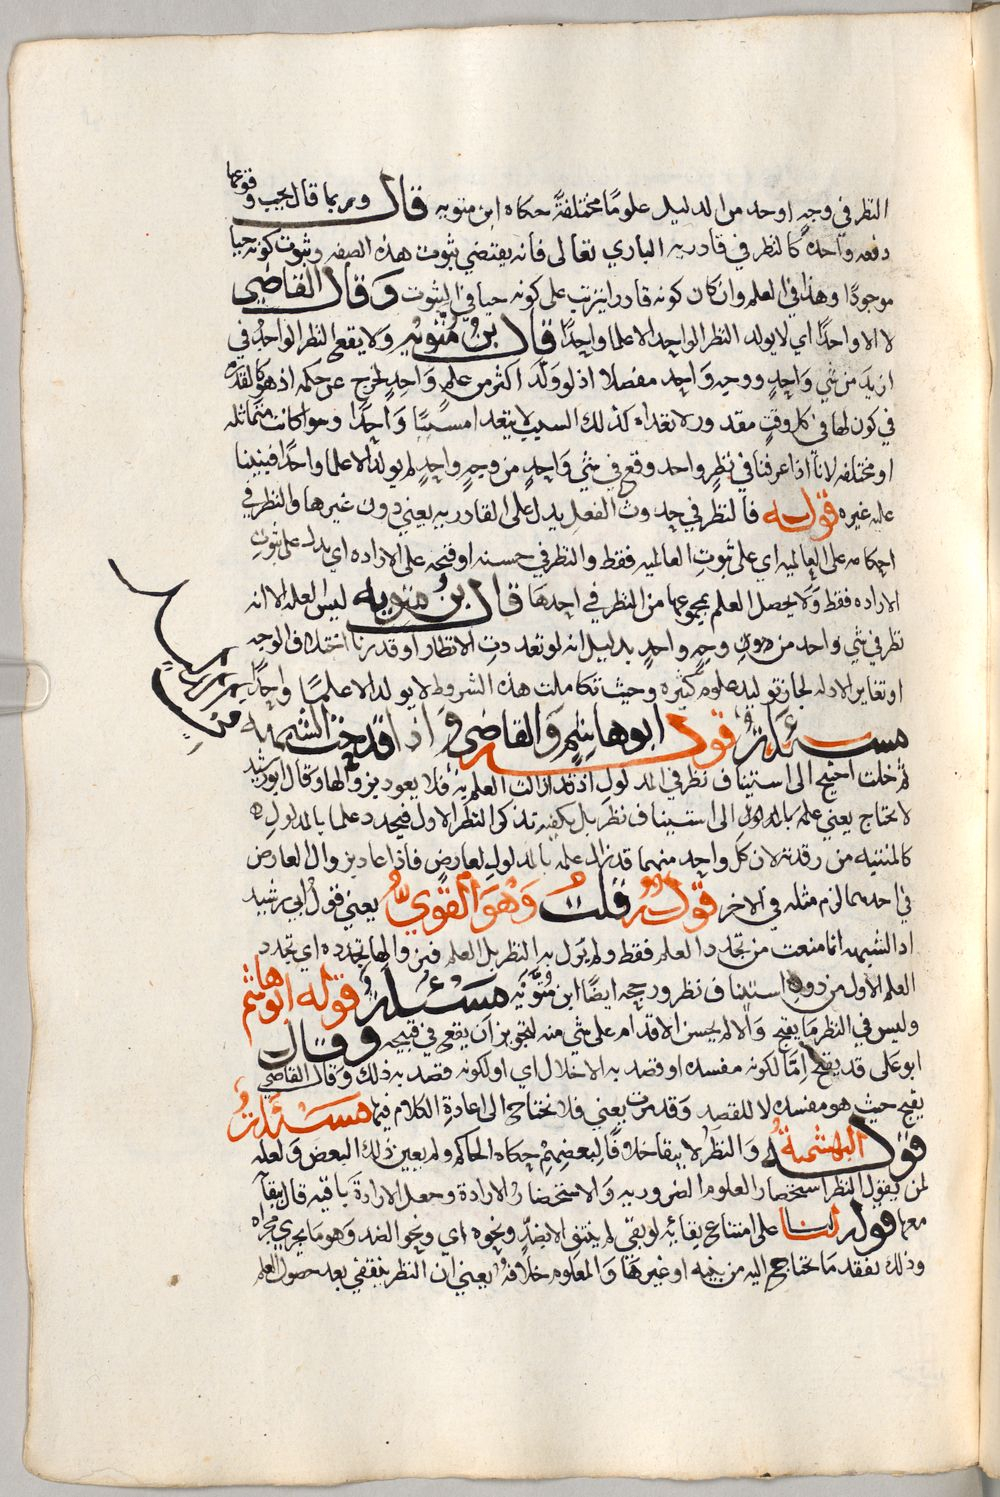 النظر في وجه اوحد من الدليل علوما مختلفة حكاه ابن متويه قال وربما قال يجب وقوعها
دفعه واحدة كالنظر في قادريه الباري تعالى فانه يقتضي بثبوت هذه الصفه وثبوت كونه حيا
موجودا وهذا في العلم وان كان كونه قادرا يترتب على كونه حيا في الثبوت وقال القاضي
لا الا واحدا اي لا يولد النظر الواحد الا علما واحدا قال بن متويه ولا يقع النظر الواحد في
ازيد من شي واحد ووجه واحد مفصلا اذ لو ولد اكثر من علم واحد لخرج عن حكمه اذ هو كالقدره
في كون لها في كل وقت مقدور ولا تعداه كذلك السبب لا يتعدا مسببا واحدا وسوا كانت متماثله
او مختلفه لانا اذا عرفنا في نظر واحد وقع في شي واحد من وجه واحد لم يولد الا علما واحدا فبينا
عليه غيره قوله فالنظر في حدوث الفعل يدل على القادريه يعني دون غيرها والنظر في
احكامه على العالميه اي على ثبوت العالميه فقط والنظر في حسنه او قبحه على الاراده اي يدل على ثبوت
الاراده فقط ولا يحصل العلم بمجموعها من النظر في احدها قال بن متويه ليس العله الا انه
نظر في شي واحد من دون وجه واحد بدليل انه لو تعددت الانظار او قدرنا اختلاف الوجه
او تغاير الادله لجاز توليد علوم كثيره وحيث تكاملت هذه الشروط لا يولد الا علما واحدا
مسئلة قوله ابو هاشم والقاضي واذا قدحت الشبهه
ثم حلت احتيج الى استيناف نظر في المدلول اذ قد ازالت العلم به فلا يعود بزوالها وقال ابو رشيد
لا يحتاج يعني علمه بالمدلول الى استيناف نظر بل يكفيه تذكر النظر الاول فيجدد علما بالمدلول
كالمنتبه من رقدته لان كل واحد منهما قد زال علمه بالمدلول لعارض فاذا عاد بزوال العارض
في احدهما لزم مثله في الاخر قوله قلت وهو القوي يعني قول ابي رشيد
اذ الشبهه انما منعت من تجدد العلم فقط ولم يزل به النظر بل العلم فبزوالها تجدده اي تجدد
العلم الاول من دون استيناف نظر ورجحه ايضا ابن متويه مسئلة قوله ابو هاشم
وليس في النظر ما يقبح والا لم يحسن الاقدام على شي منه لتجويز ان يقع في قبيحه وقال
ابو علي قد يقبح اما لكونه مفسده او قصد به الاخلال اي او لكونه قصد به ذلك وقال القاضي
يقبح حيث هو مفسده لا للقصد وقد مرت يعني فلا نحتاج الى اعادة الكلام فيها مسئلة
قوله البهشمية والنظر لا يبقا خلافا لبعضهم حكاه الحاكم ولم يعين ذلك البعض ولعله
لمن يقول النظر استحضار العلوم الضروريه والاستحضار الارادة وجعل الارادة باقيه قال ببقاء
معها قوله لنا على امتناع بقائه لو بقي لم ينتف الا بضد ونحوه اي ونحو الضد وهو ما يجري مجراه
وذلك بفقد ما تحتاج اليه من بنيه او غيرها والمعلوم خلافه يعني ان النظر ينقضي بعد حصول العلم